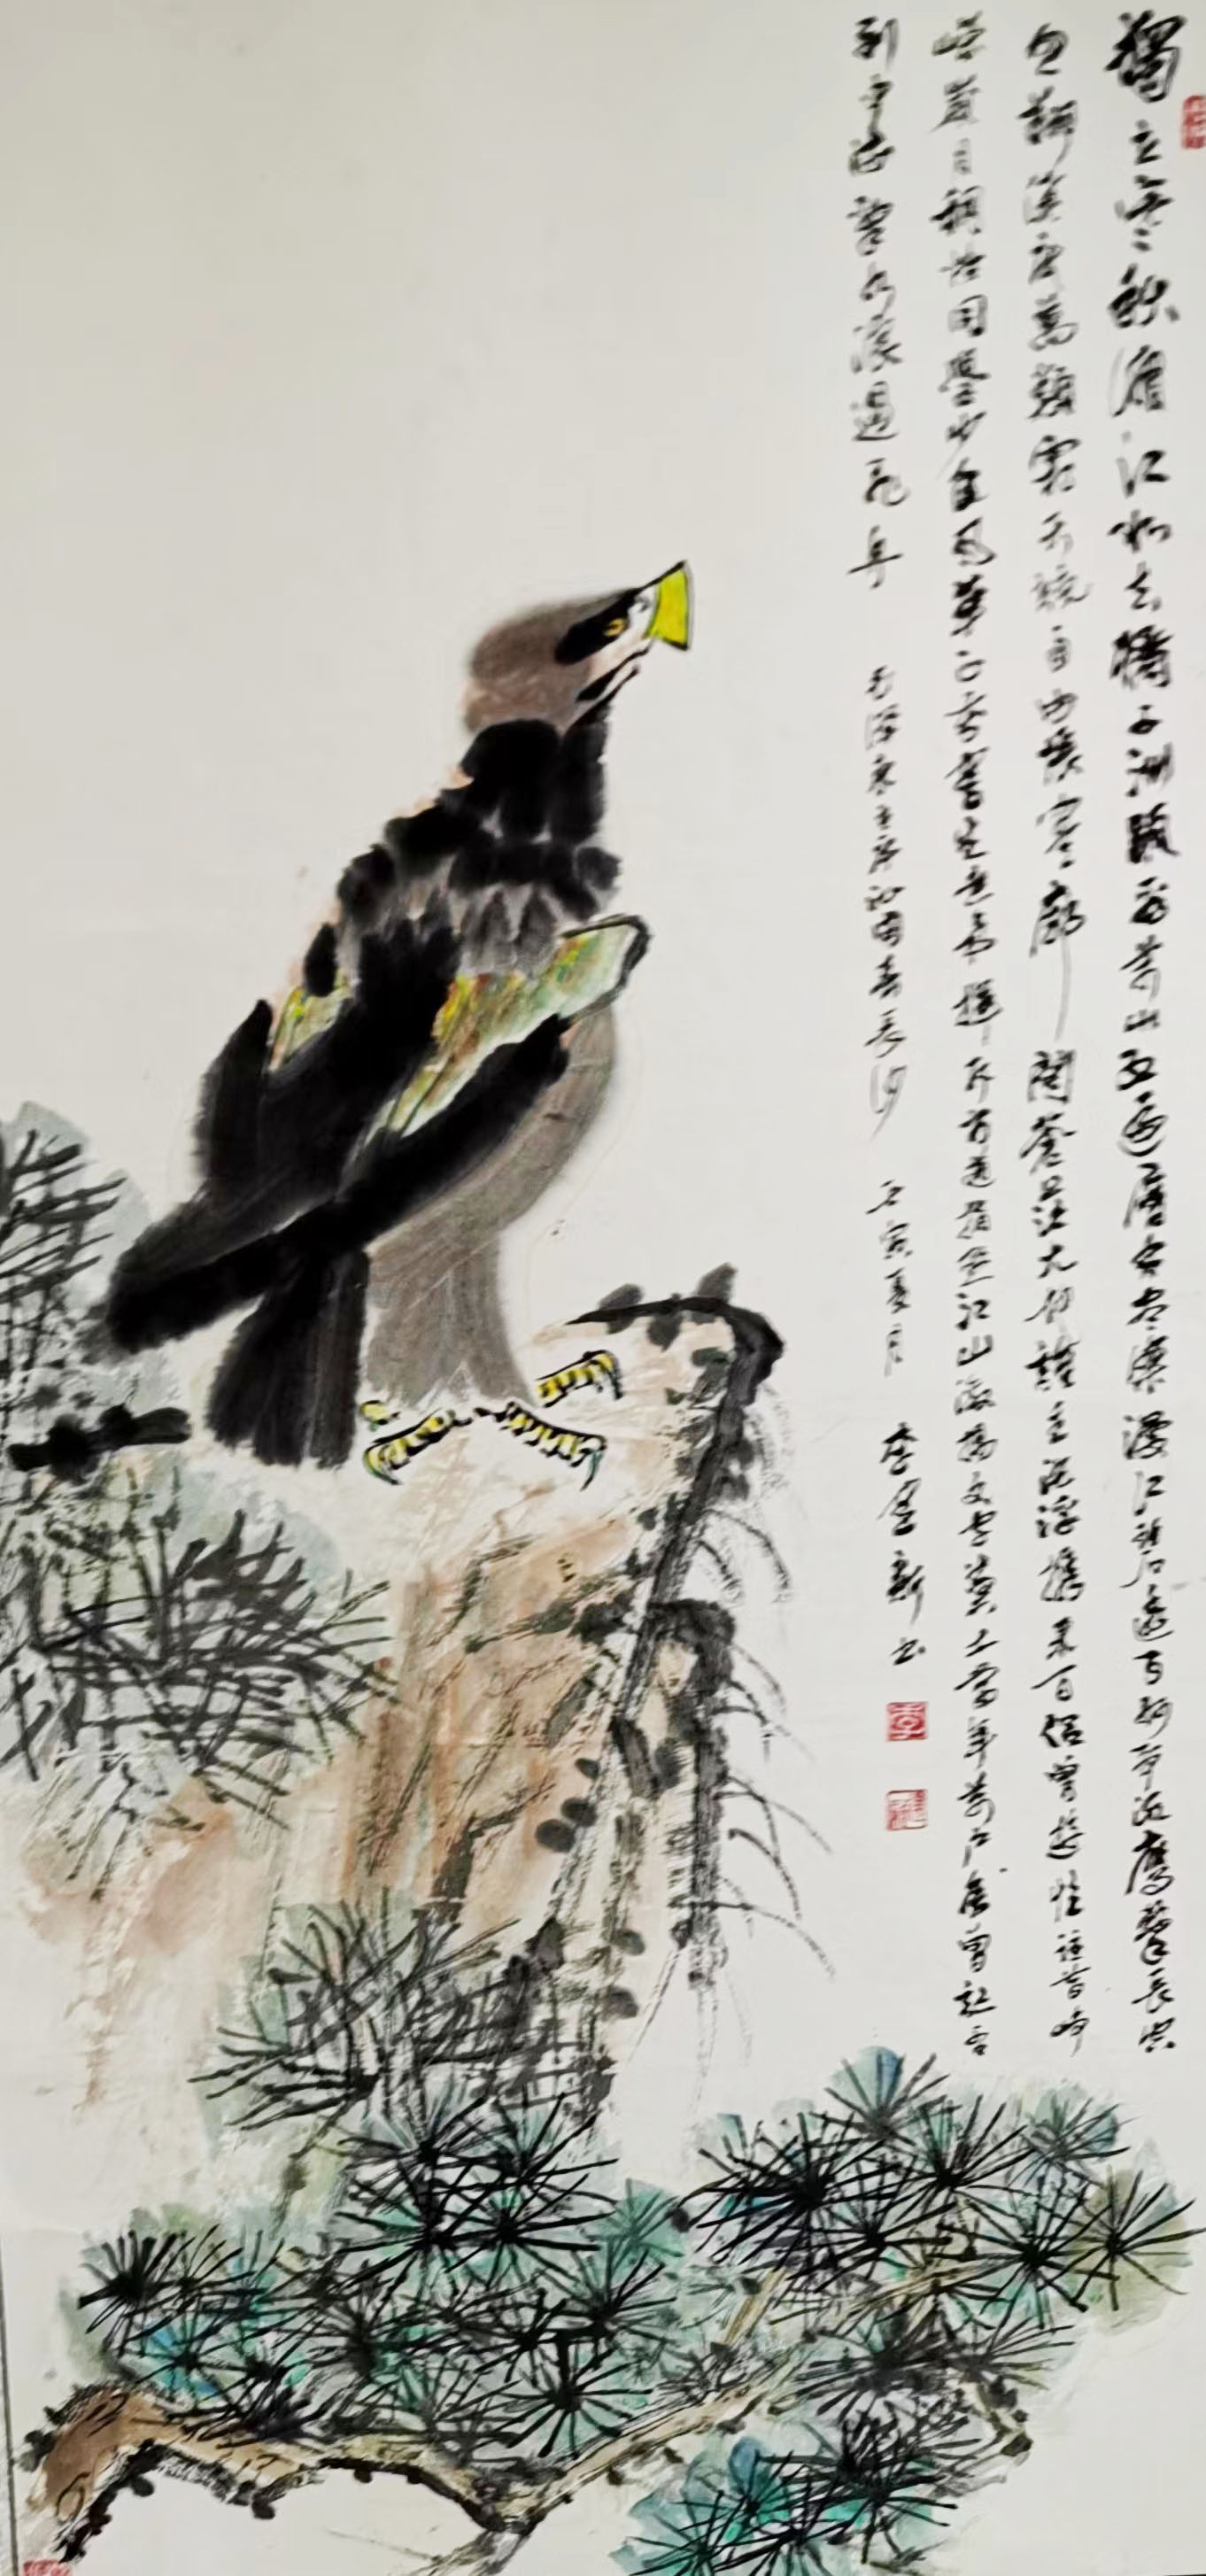 獨立寒秋湘江北去橘子洲頭看萬山紅遍層林盡染漫江碧透百舸爭流鷹擊長空
魚翔淺底萬類霜天競自由悵寥廓問蒼茫大地誰主沉浮攜來百侶曾遊憶往昔崢
嶸歲月稠恰同學少年風華正茂書生意氣揮斥方遒指點江山激揚文字糞土當年萬戶侯曾記否
到中流擊水浪遏飛舟 毛澤東主席沁園春長沙 壬寅夏月 李 新书
李